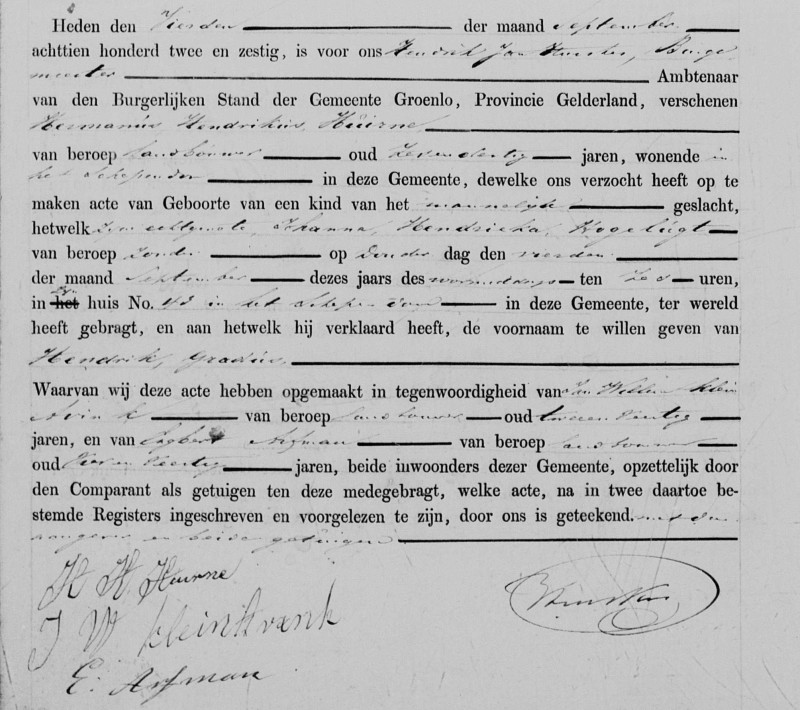 Heden den Vierden der maand September
achttien honderd twee en zestig, is voor ons Hendrik Jan Burge
meester Ambtenaar
van den Burgerlijken Stand der Gemeente Groenlo, Provincie Gelderland, verschenen
Hermanus Hendrikus Huirne
van beroep Landbouwer oud zevendertig jaren, wonende in
het Schependom in deze Gemeente, dewelke ons verzocht heeft op te
maken acte van Geboorte van een kind van het mannelijk geslacht,
hetwelk echtgenote, Johanna, Hendrieka, Kogelugt
van beroep zonder op Donder dag den vierden
der maand September dezes jaars des voormiddags ten zes uren,
in het huis No. in het Schependom in deze Gemeente, ter wereld
heeft gebragt, en aan hetwelk hij verklaard heeft, de voornaam te willen geven van
Hendrik, Gradus
Waarvan wij deze acte hebben opgemaakt in tegenwoordigheid van Jan Willem klein
Avink van beroep Landbouwer oud jaren
jaren, en van Engbert Arfman van beroep Landbouwer
oud Vier en Veertig jaren, beide inwoonders dezer Gemeente, opzettelijk door
den Comparant als getuigen ten deze medegebragt, welke acte, na in twee daartoe be-
stemde Registers ingeschreven en voorgelezen te zijn, door ons is geteekend. met den
aangever en beide getuigen
H H Huirne
J W klein
E. Arfman